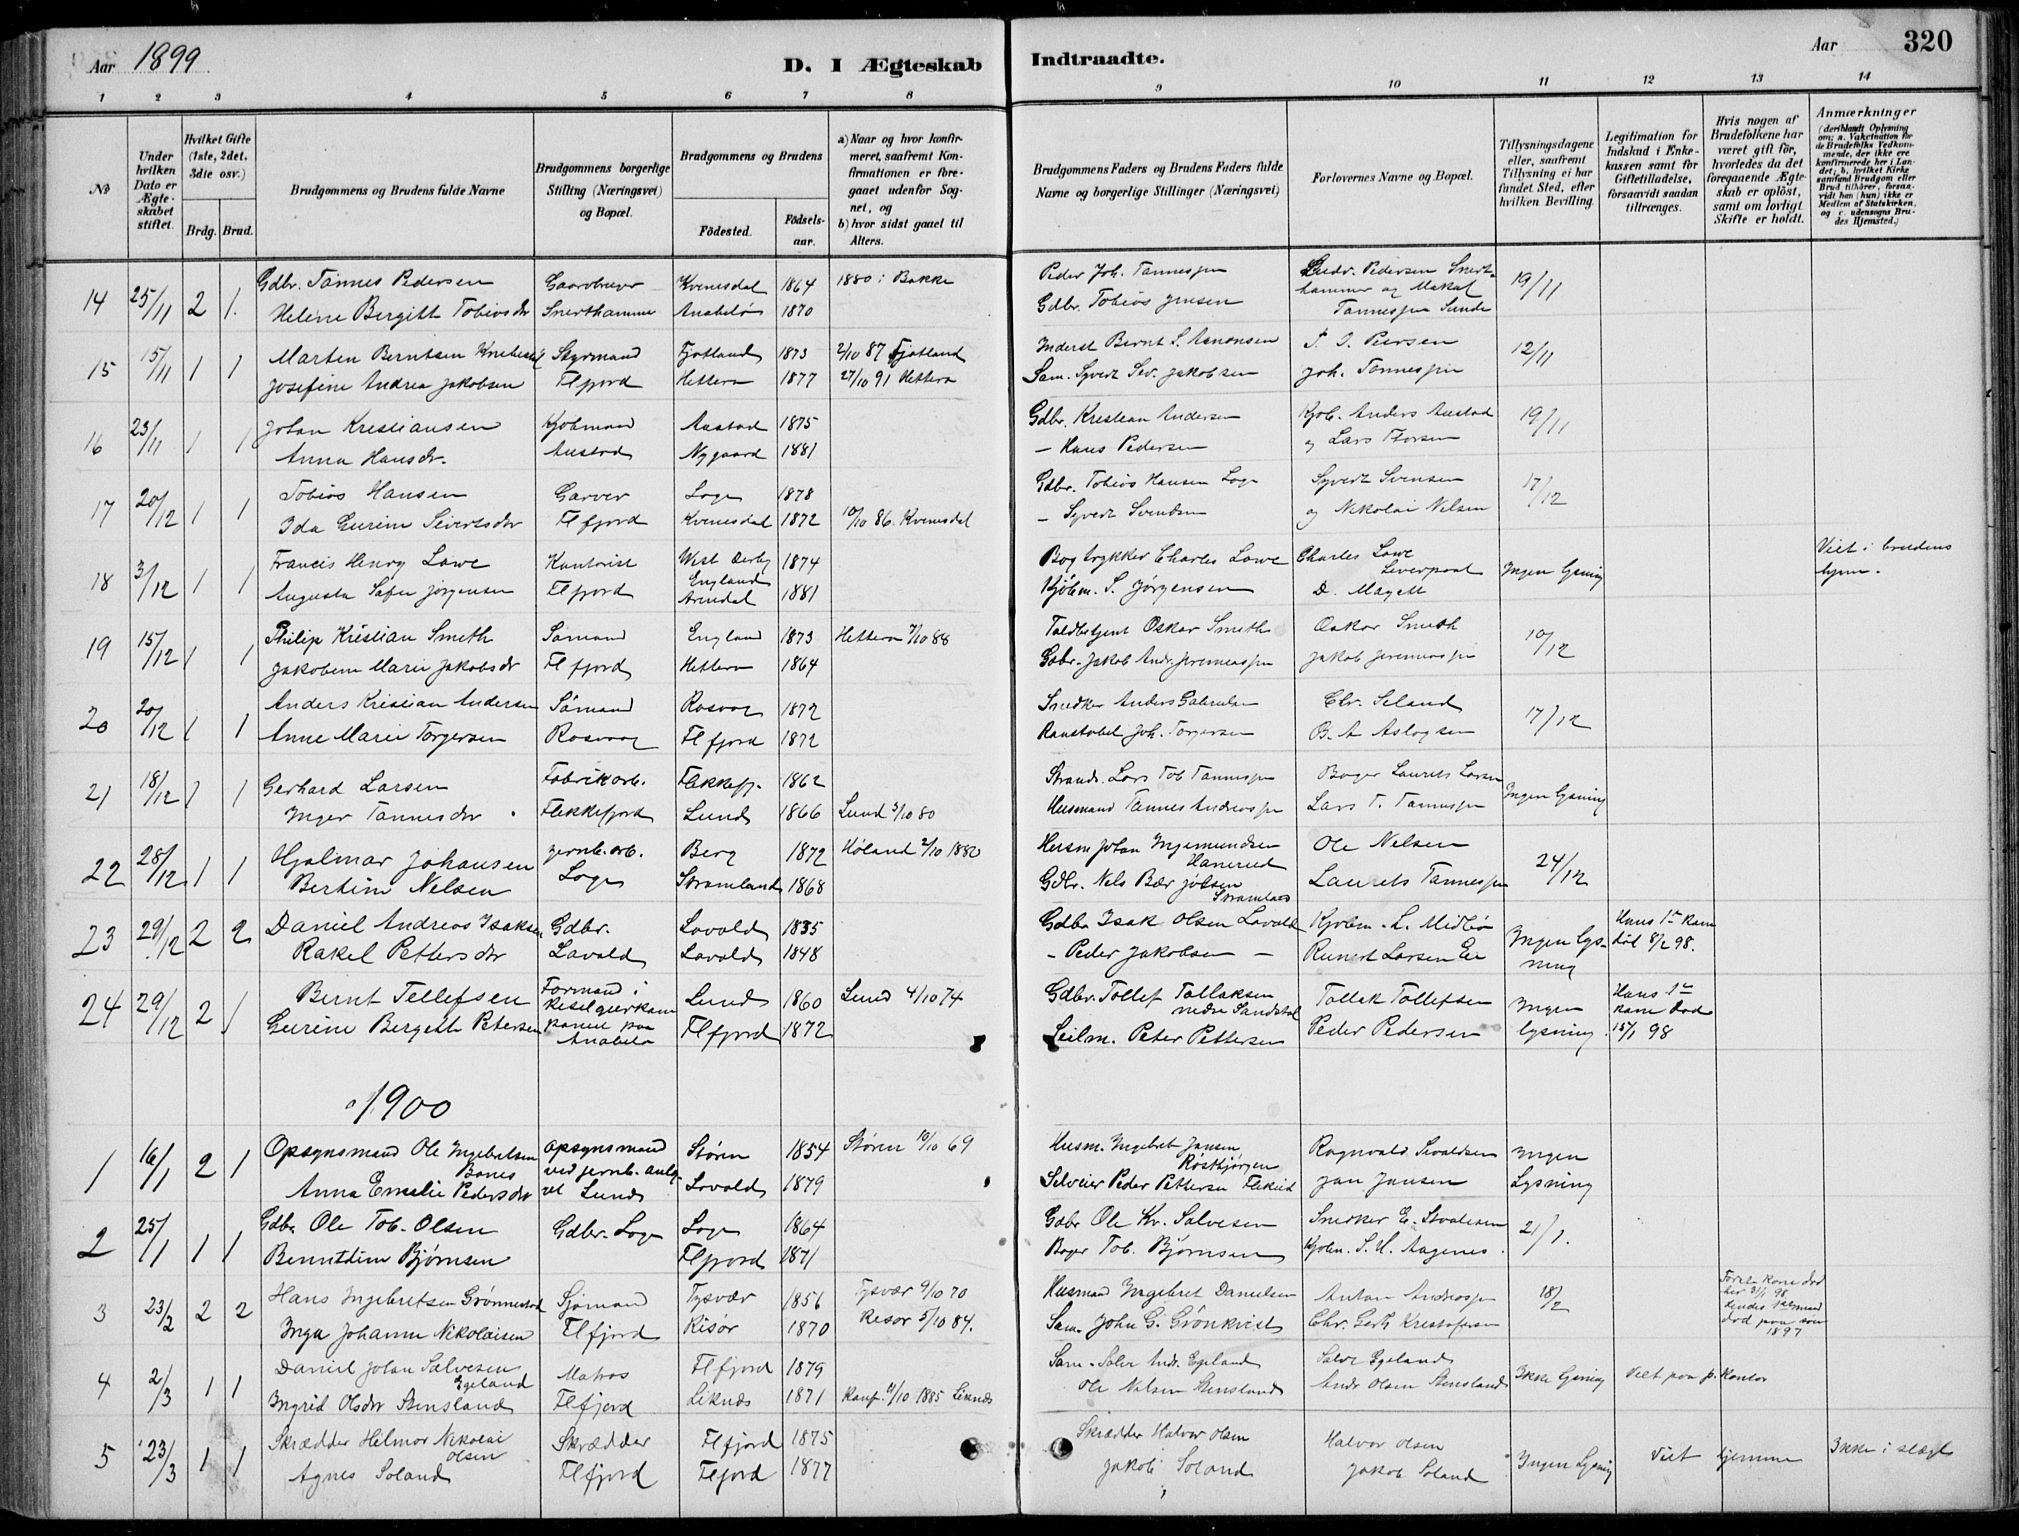 Aar 1899
D. I Ægteskab Indtraadte.
Aar 320
1 2 3 4 5 6 7 8 9 10 11 12 13 14
No
Under hvilken Dato er Ægteskabet stiftet.
Hvilket Gifte (1ste, 2det, 3die osv.)
Brdg. Brud.
Brudgommens og Brudens fulde Navne
Brudgommens borgerlige Stilling (Næringsvei) og Bopæl.
Brudgommens og Brudens
Födested. Födselsaar.
a) Naar og hvor konfirmeret, saafremt Konfirmationen er foregaaet udenfor Sognet, og
b) hvor sidst gaaet til Alters.
Brudgommens Faders og Brudens Faders fulde Navne og borgerlige Stillinger (Næringsvei)
Forlovernes Navne og Bopæl.
Tillysningsdagene eller, saafremt Tillysning ei har fundet Sted, efter hvilken Bevilling.
Legitimation for Indskud i Enkekassen samt for Giftetilladelse, forsaavidt saadan tiltrænges.
Hvis nogen af Brudefolkene har været gift för, hvorledes da det foregaaende Ægteskab er oplöst, samt om lovligt Skifte er holdt.
Anmærkninger (deriblandt Oplysning om: a. Vakcination for de Brudefolks Vedkommende, der ikke ere konfirmerede her i Landet; b. hvilket Kirkesamfund Brudgom eller Brud tilhörer, forsaavidt han (hun) ikke er Medlem af Statskirken, og c. udensogns Brudes Hjemsted.)
14 25/11 2 1. Gdbr. Tønnes Pedersen Gaardbruger Kvinesdal 1864 1880 i Bakke Peder Joh. Tønnessen Pedersen 19/11
Helene Bergitt Tobiasdr Snerthammer Anabelø 1870 Gdbr. Tobias Jensen Tønnessen Sunde
15 15/11 1 1 Marten Berntsen Styrmand Fjotland 1873 2/10 87 Fjotland Inderst Bernt S. Aanonsen Peersen 12/11
Josefine Andrea Jakobsen Flfjord Hetteren 1877 27/10 91 Hetteren Sam. Syvert Sev. Jakobsen Joh. Tønnessen
16 23/11 1 1 Johan Kristiansen Kjøbmand Austad 1875 Gdbr. Kristian Andersen Kjøb. Anders Austad 19/11
Anna Hansdr. Austad Nygaard 1881 — Hans Pedersen og Lars Thorsen
17 20/12 1 1 Tobias Hansen Garver Loge 1878 Gdbr. Tobias Hansen Loge Syvert Svensen 17/12
Ida Gurine Seivertsdr Flfjord Kvinesdal 1872 10/10 86. Kvinesdal — Syvert Svendsen og Nikolai Nilsen
18 3/12 1 1 Francis Henry Lowe Kontorist West Derby England 1874 Bogtrykker Charles Lowe Charles Lowe Liverpool Ingen lysning Viet i brudens hjem.
Augusta Sofie Jørgensen Flfjord Arendal 1881 Kjøbm. S. Jørgensen D. Magell
19 15/12 1 1 Philip Kristian Smith Sømand England 1873 Hetteren 7/10 88 Toldbetjent Oskar Smith Oskar Smith 10/12
Jakobine Marie Jakobsdr Flfjord Hetteren 1864 Gdbr. Jakob Andr. Jeremiassen Jakob Jeremiassen
20 20/12 1 1 Anders Kristian Andersen Sømand Rasvog 1872 Snedker Anders Gabrielsen Chr. Seland 17/12
Anne Marie Torgersen Rasvog Flfjord 1872 Joh. Torgersen B. A Aslagsen
21 18/12 1 1 Gerhard Larsen Fabrikarb. Flekkefj. 1862 Strands. Lars Tob Tønnessen Bager Laurits Larsen Ingen lysning
Inger Tønnesdr Flekkefjord Lund 1866 Lund 3/10 80 Husmand Tønnes Andreassen Lars T. Tønnessen
22 28/12 1 1 Hjalmar Johansen jernb.arb. Berg 1872 Høland 2/10 1882 Husm Johan Ingemundsen Hanerud Ole Nelsen 24/12
Bertine Nelsen Loge Stramland 1868 Gdbr. Nels Bær Jøssen Stramland Laurets Tønnessen
23 29/12 2 2 Daniel Andreas Isaksen Gdbr. Lavold 1835 Gdbr Isak Olsen Lavold Kjøbm. L. Midbø Ingen lysning Hans 1te kone død 8/2 98.
Rakel Pettersdr Lavold Lavold 1848 — Peder Jakobsen — Reinert Larsen Eie
24 29/12 2 1 Bernt Tellefsen Formand i Kiselguerkompaniet paa Anabelø Lund 1860 Lund 4/10 74 Gdbr. Tollef Tollaksen nedre Sandstøl Tollak Tollefsen Ingen lysning. Hans 1te kone død 15/1 98
Gurine Bergitte Petersen Flfjord 1872 Leilm. Peter Pettersen Peder Pedersen
1900
1 16/1 2 1 Opsynsmand Ole Ingebretsen Bones opsynsmand ved jernb. anlægget Lund Støren 1854 Støren 10/10 69 Husm. Ingebret Jansen Røstbjørgen Ragnvald Sivaldsen Ingen Lysning
Anna Emelie Pedersdr Lavold 1879 Selveier Peder Pettersen Flikeid Jan Jansen
2 25/1 1 1 Gdbr Ole Tob. Olsen Gdbr. Loge Loge 1864 Gdbr Ole Kv. Salvesen Snekker E. 21/1.
Berntine Bjørnsen Flfjord 1871 Bager Tob. Bjørnsen Kjøbm. S. H. Aagenes.
3 23/2 2 2 Hans Ingebretsen Grønnestad Sjømand Tysvær 1856 Tysvær 9/10 70 Husmand Ingebret Danielsen Anton Andreassen 18/2 Første kone død her 3/1 98 hendes 1ste mand død paa søen 1897
Inga Johanne Nikolaisen Flfjord Risør 1870 Risør 5/10 84. Søm. John G. Grønkvist Chr. Kristofersen
4 2/3 1 1 Daniel Johan Salvesen Egeland Matros Flfjord 1879 Søm. Salve Andr. Egeland Salve Egeland Ikke lysning Viet paa p. kontor
Ingrid Olsdr Stensland Flfjord Liknes 1871 Konf. 4/10 1885 Liknes Ole Nilsen Stensland Andr Olsen Stensland
5 23/3 1 1 Skrædder Hilmar Nikolai Olsen Skrædder Flfjord 1875 Skrædder Halvor Olsen Halvor Olsen Ingen Lysning Viet hjemme Ikke i slægt
Agnes Soland Flfjord Flfjord 1877 Jakob Soland Jakob Soland